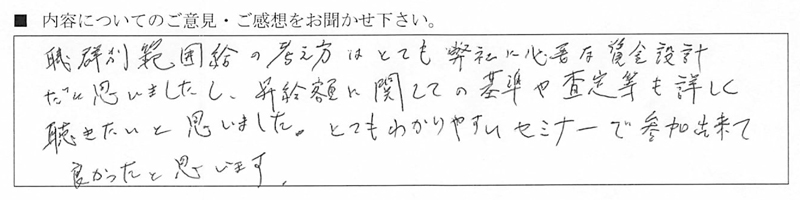 ■ 内容についてのご意見・ご感想をお聞かせ下さい。
職群別範囲給の考え方はとても弊社に必要な賃金設計
だと思いましたし、昇給額に関しての基準や査定等も詳しく
聴きたいと思いました。とてもわかりやすいセミナーで参加出来て
良かったと思います。